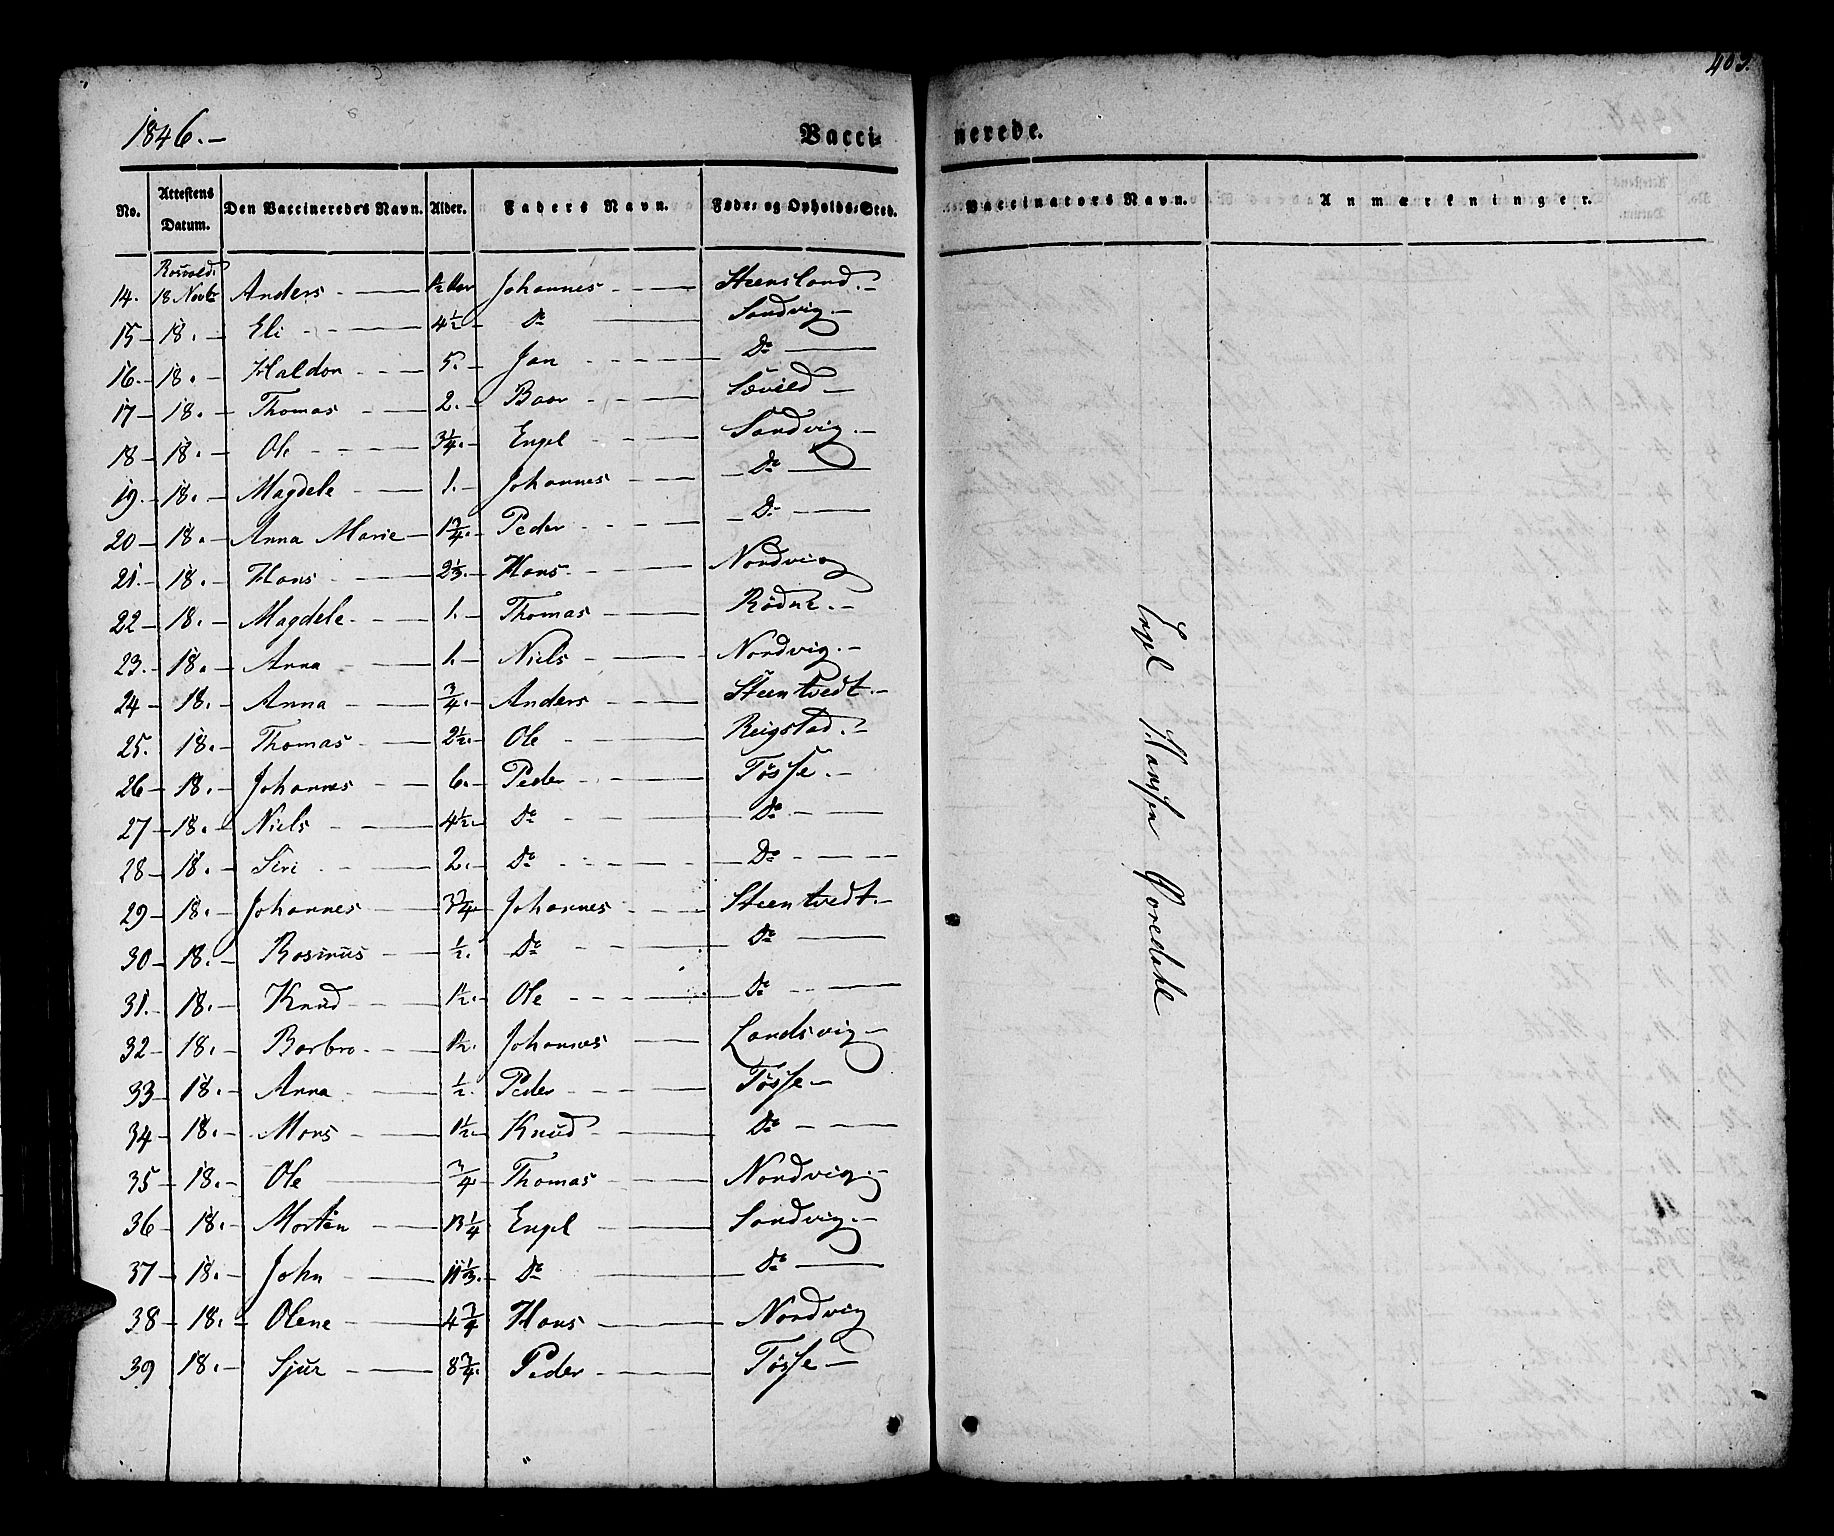 403.
1846.- Vacci= nerede.
No. Attestens Datum. Den Vaccineredes Navn. Alder. Faders Navn. Føde- og Opholds-Sted. Vaccinators Navn. Anmærkninger.
14. 18 Novbr Anders 1½ Johannes Steensland.-
15 - 18. - Eli 4½ - Do Sandvig.-
16. - 18. - Haldor 5. - Jan Do
17 - 18. - Thomas 2. - Baar Sævild -
18 - 18. - Ole 3¼. - Engel Sandvig.-
19. - 18. - Magdele 1. - Johannes Do
20 - 18. - Anna Marie 1¾. - Peder Do
21. - 18. - Hans 2⅓. - Hans Nordvig
22 - 18. - Magdele 1. - Thomas Rødne.-
23. - 18. - Anna 1. - Niels Nordvig.-
24 - 18. - Anna ¾. - Anders Steentvedt.-
25. 18. - Thomas 2½. - Ole Reigstad.-
26 - 18. - Johannes 6. - Peder Tøsse.-
27 - 18. - Niels 4½. - Do Do
28 - 18. - Siri 2. - Do Do
29 - 18. - Johannes 3¾ Johannes Steentvedt.-
30 - 18. - Rasmus ½. Do Do
31. - 18. - Knud 1½. - Ole Do
32 - 18. - Barbro 1½. Johannes Landsvig -
33 - 18. - Anna ½. Peder Tøsse -
34 - 18. - Mons 1½. - Knud Do
35 - 18. - Ole ¾ Thomas Nordvig.-
36 - 18. - Morten 13¼ Engel Sandvig.-
37 - 18. - John 11⅓. - Do Do
38 - 18. - Olene 4¾ Hans Nordvig
39 18. - Sjur 8¾. Peder Tøsse -
Engel Hansen